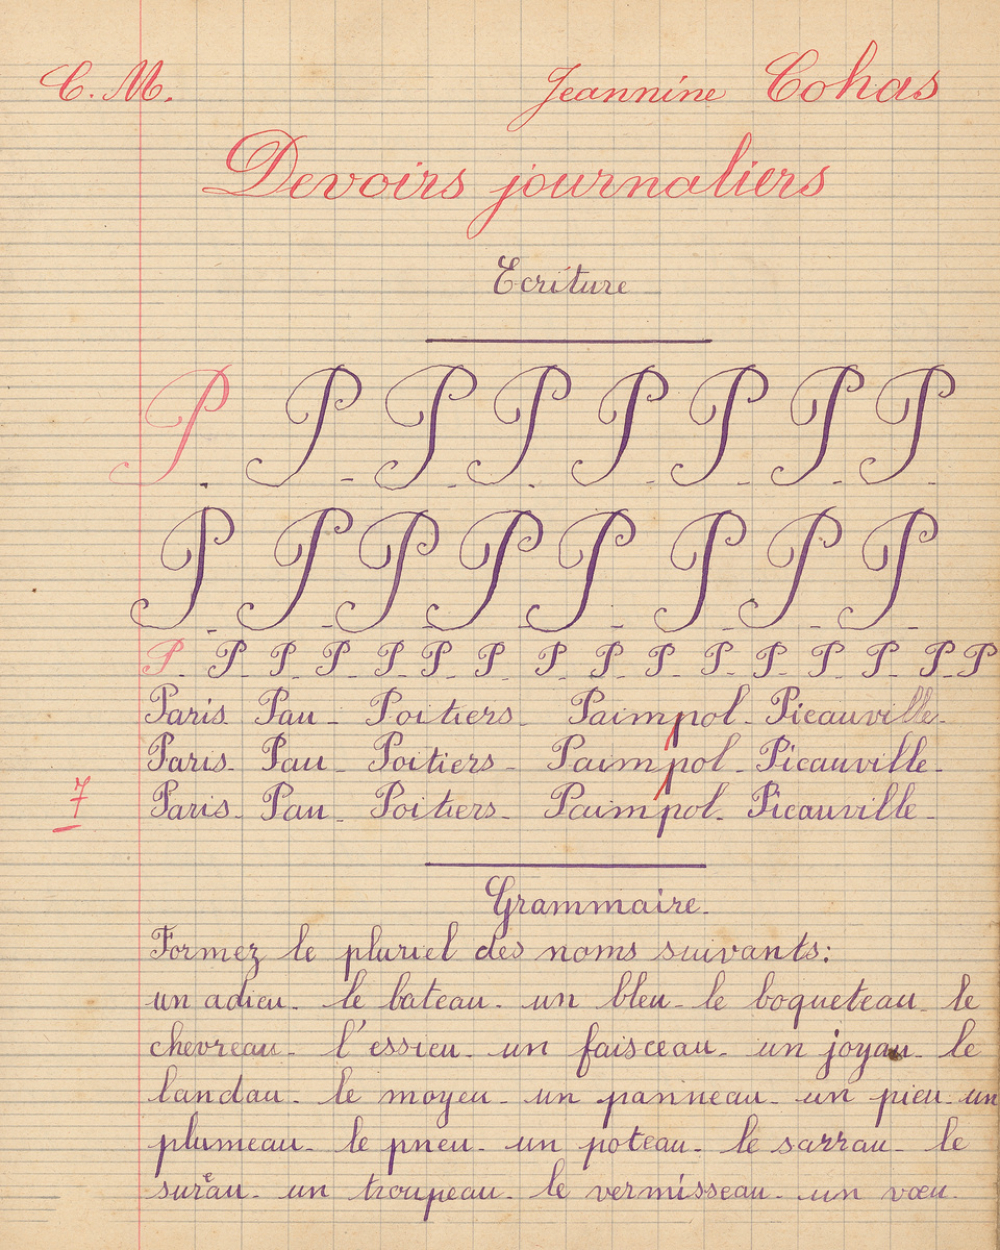 C. M. Jeannine Cohas
Devoirs journaliers
Ecriture
P. P - P P - P. P - P - P - P -
P - P - P P - P - P - P - P -
P. P - P - P - P - P - P - P - P - P - P - P - P - P - P P
Paris. Pau - Poitiers - Paimpol - Picauville -
Paris - Pau - Poitiers - Paimpol - Picauville -
7 Paris - Pau - Poitiers - Paimpol - Picauville -
Grammaire.
Formez le pluriel des noms suivants:
un adieu - le bateau - un bleu - le boqueteau - le
chevreau - l'essieu - un faisceau - un joyau - le
landau - le moyeu - un panneau - un pieu - un
plumeau - le pneu - un poteau - le sarrau - le
suréau - un troupeau - le vermisseau - un vœu.